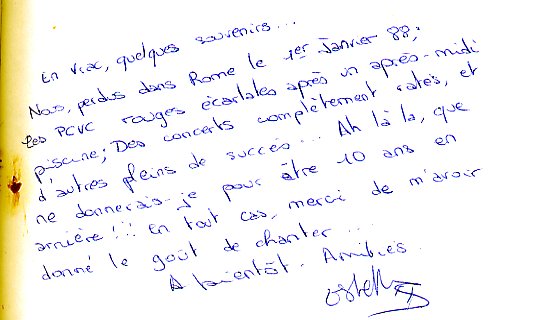 En vrac, quelques souvenirs...
Nous, perdus dans Rome le 1er Janvier 88;
Les PCVC rouges écarlates après un après-midi
piscine; Des concerts complètement ratés, et
d'autres pleins de succès... Ah là là, que
ne donnerais-je pour être 10 ans en
arrière!!! En tout cas, merci de m'avoir
donné le goût de chanter...
A bientôt. Amitiés.
Estelle